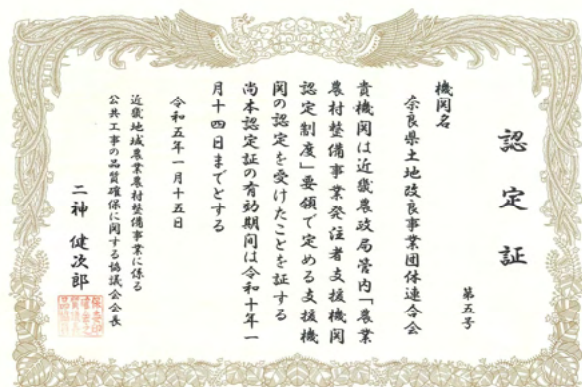 認定証
第五号
機関名
奈良県土地改良事業団体連合会
貴機関は近畿農政局管内「農業
農村整備事業発注者支援機関
認定制度」要領で定める支援機
関の認定を受けたことを証する
尚本認定証の有効期間は令和十年一
月十四日までとする
令和五年一月十五日
近畿地域農業農村整備事業に係る
公共工事の品質確保に関する協議会会長
二神健次郎